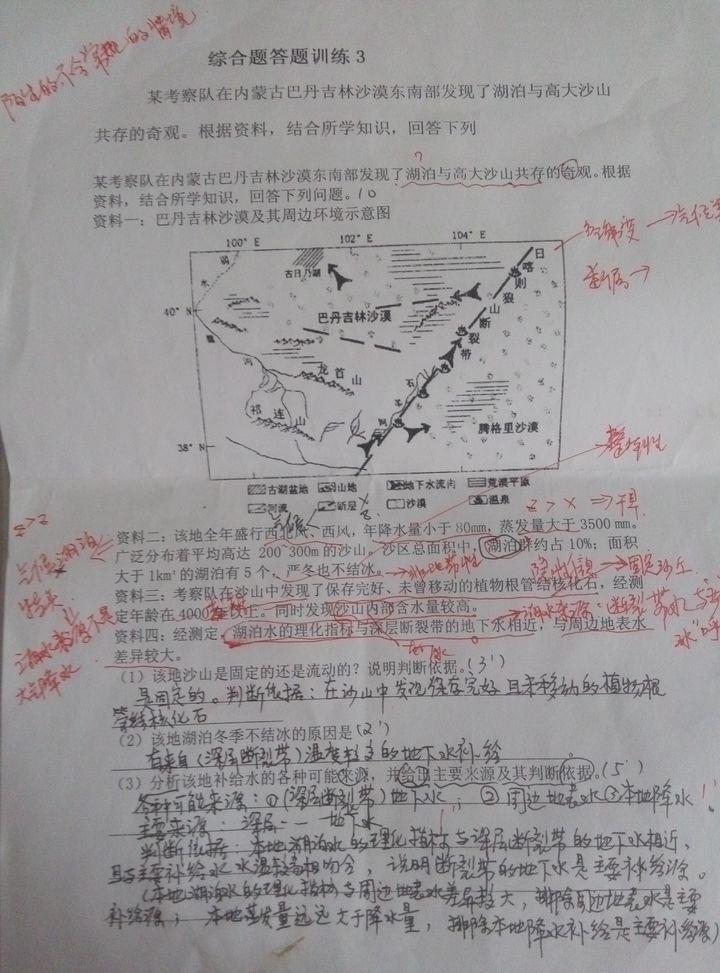 陌生的不会常规的情境
综合题答题训练3
某考察队在内蒙古巴丹吉林沙漠东南部发现了湖泊与高大沙山
共存的奇观。根据资料，结合所学知识，回答下列
某考察队在内蒙古巴丹吉林沙漠东南部发现了湖泊与高大沙山共存的奇观。根据
资料，结合所学知识，回答下列问题。10
资料一：巴丹吉林沙漠及其周边环境示意图
100°E 102°E 104°E
古日乃湖
弱水
40°N
巴丹吉林沙漠
日喀则狼山断裂带
龙首山
河
祁连山
石羊河
腾格里沙漠
38°N
古湖盆地 山地 地下水流向 荒漠平原
河流 断层 沙漠 温泉
整体性
资料二：该地全年盛行西北风、西风，年降水量小于80mm，蒸发量大于3500mm。
广泛分布着平均高达 200~300m的沙山。沙区总面积中，湖泊群约占10%；面积
大于1km²的湖泊有5个，严冬也不结冰。
资料三：考察队在沙山中发现了保存完好、未曾移动的植物根管结核化石，经测
定年龄在4000年以上。同时发现沙山内部含水量较高。
资料四：经测定，湖泊水的理化指标与深层断裂带的地下水相近，与周边地表水
差异较大。
大气降水
（1）该地沙山是固定的还是流动的？说明判断依据。(3')
是固定的。判断依据：在沙山中发现保存完好且未移动的植物根
管结核化石
（2）该地湖泊冬季不结冰的原因是(2')
有来自(深层断裂带)温度较高的地下水补给
（3）分析该地补给水的各种可能来源，并给出主要来源及其判断依据。(5')
各种可能来源：①(深层断裂带)地下水；②周边地表水③本地降水
主要来源：深层……地下水
判断依据：本地湖泊水的理化指标与深层断裂带的地下水相近，
且与主要补给水水温较高相吻合，说明断裂带的地下水是主要补给源。
(本地湖泊水的理化指标与周边地表水差异较大，排除周边地表水是主要
补给源；本地蒸发量远远大于降水量，排除本地降水补给是主要补给源)